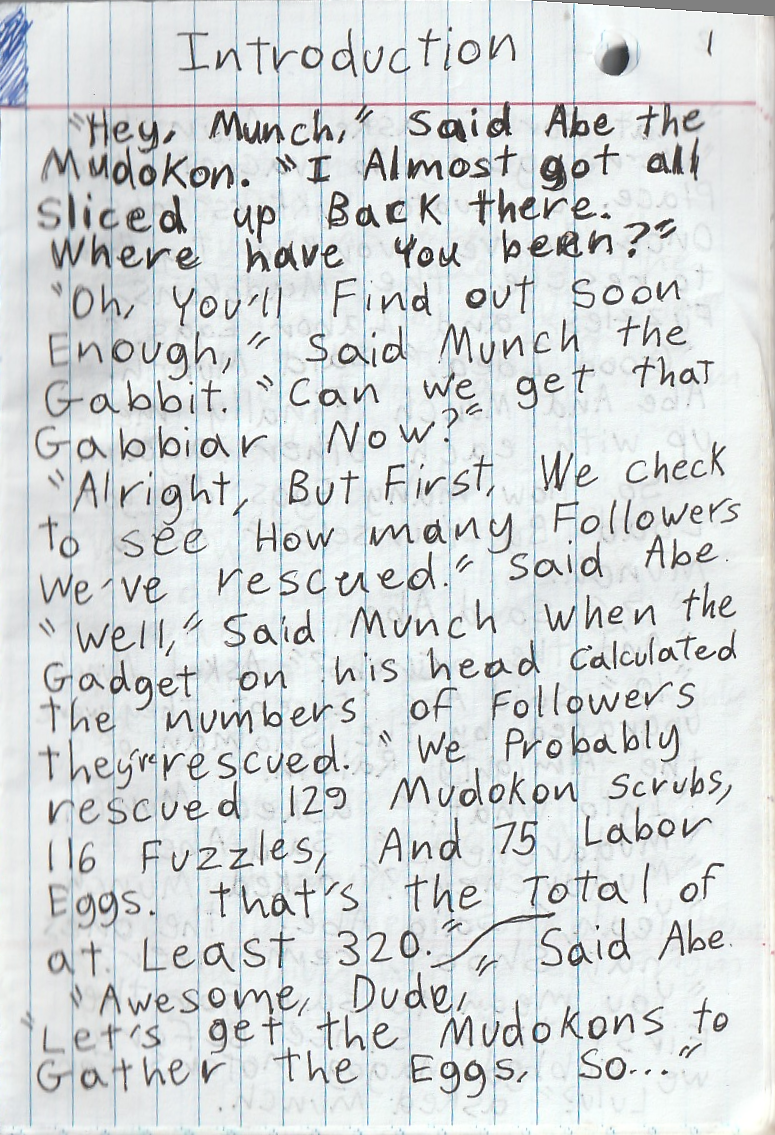 Introduction 1
"Hey, Munch," Said Abe the
Mudokon. "I Almost got all
Sliced up Back there.
Where have You been?"
"Oh, You'll Find out soon
Enough," Said Munch the
Gabbit. "Can we get that
Gabbiar Now?"
"Alright, But First, We check
to see How many Followers
We've rescued." Said Abe.
"Well," Said Munch when the
Gadget on his head calculated
the numbers of Followers
they're rescued. "We Probably
rescued 129 Mudokon scrubs,
116 Fuzzles, And 75 Labor
Eggs. that's the Total of
at Least 320."
"Awesome, Dude," Said Abe.
"Let's get the Mudokons to
Gather the Eggs, So..."